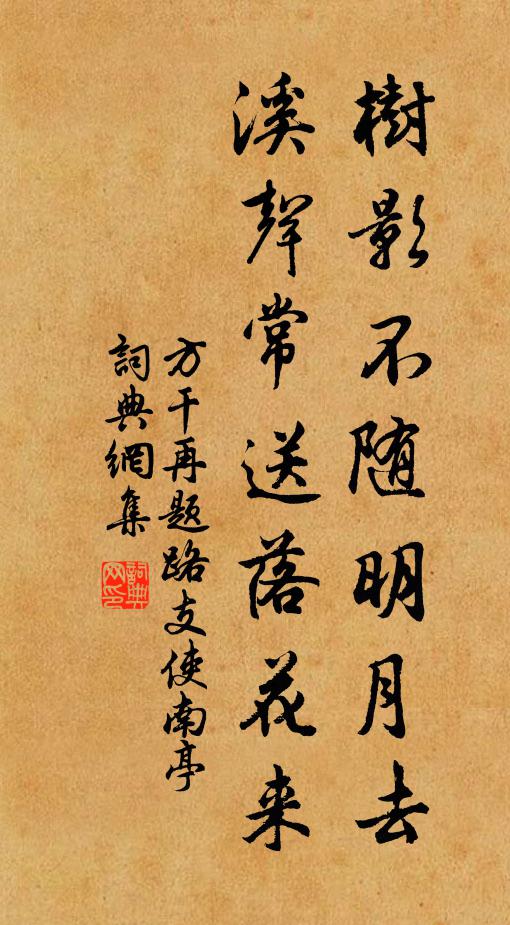 樹影不随明月去
溪聲常送落花来
方干再题路支使南亭
詞典網集
詞典网印